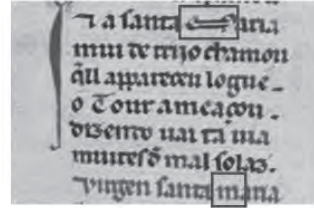 ⁊ a santa
mui de rrijo chamou
q̃ll appareceu logue-
o Tour ameaçou.
dizento uai ta uia
muit es d̃ mal solaz.
Uirgen santa maria